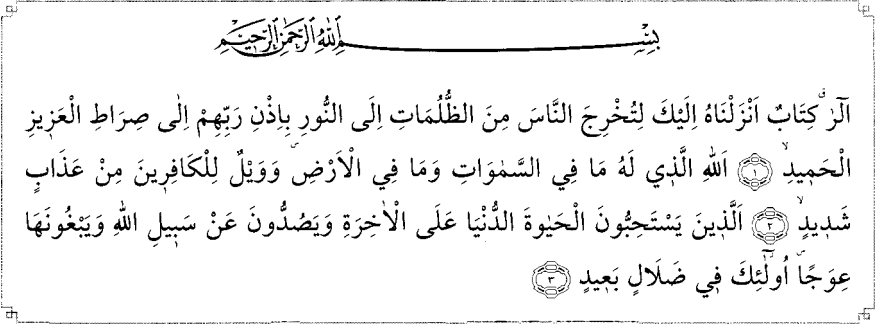 بِسْمِ اللهِ الرَّحْمٰنِ الرَّحِيمِ
الٓرٰ ۠ كِتَابٌ اَنْزَلْنَاهُ اِلَيْكَ لِتُخْرِجَ النَّاسَ مِنَ الظُّلُمَاتِ اِلَى النُّورِ بِاِذْنِ رَبِّهِمْ اِلٰى صِرَاطِ الْعَزِيزِ
الْحَمِيدِۙ ﴿١﴾ اَللهِ الَّذِي لَهُ مَا فِي السَّمٰوَاتِ وَمَا فِي الْاَرْضِۜ وَوَيْلٌ لِلْكَافِرِينَ مِنْ عَذَابٍ
شَدِيدٍۙ ﴿٢﴾ اَلَّذِينَ يَسْتَحِبُّونَ الْحَيٰوةَ الدُّنْيَا عَلَى الْاٰخِرَةِ وَيَصُدُّونَ عَنْ سَبِيلِ اللهِ وَيَبْغُونَهَا
عِوَجًاۜ اُولٰٓئِكَ فِي ضَلَالٍ بَعِيدٍ ﴿٣﴾